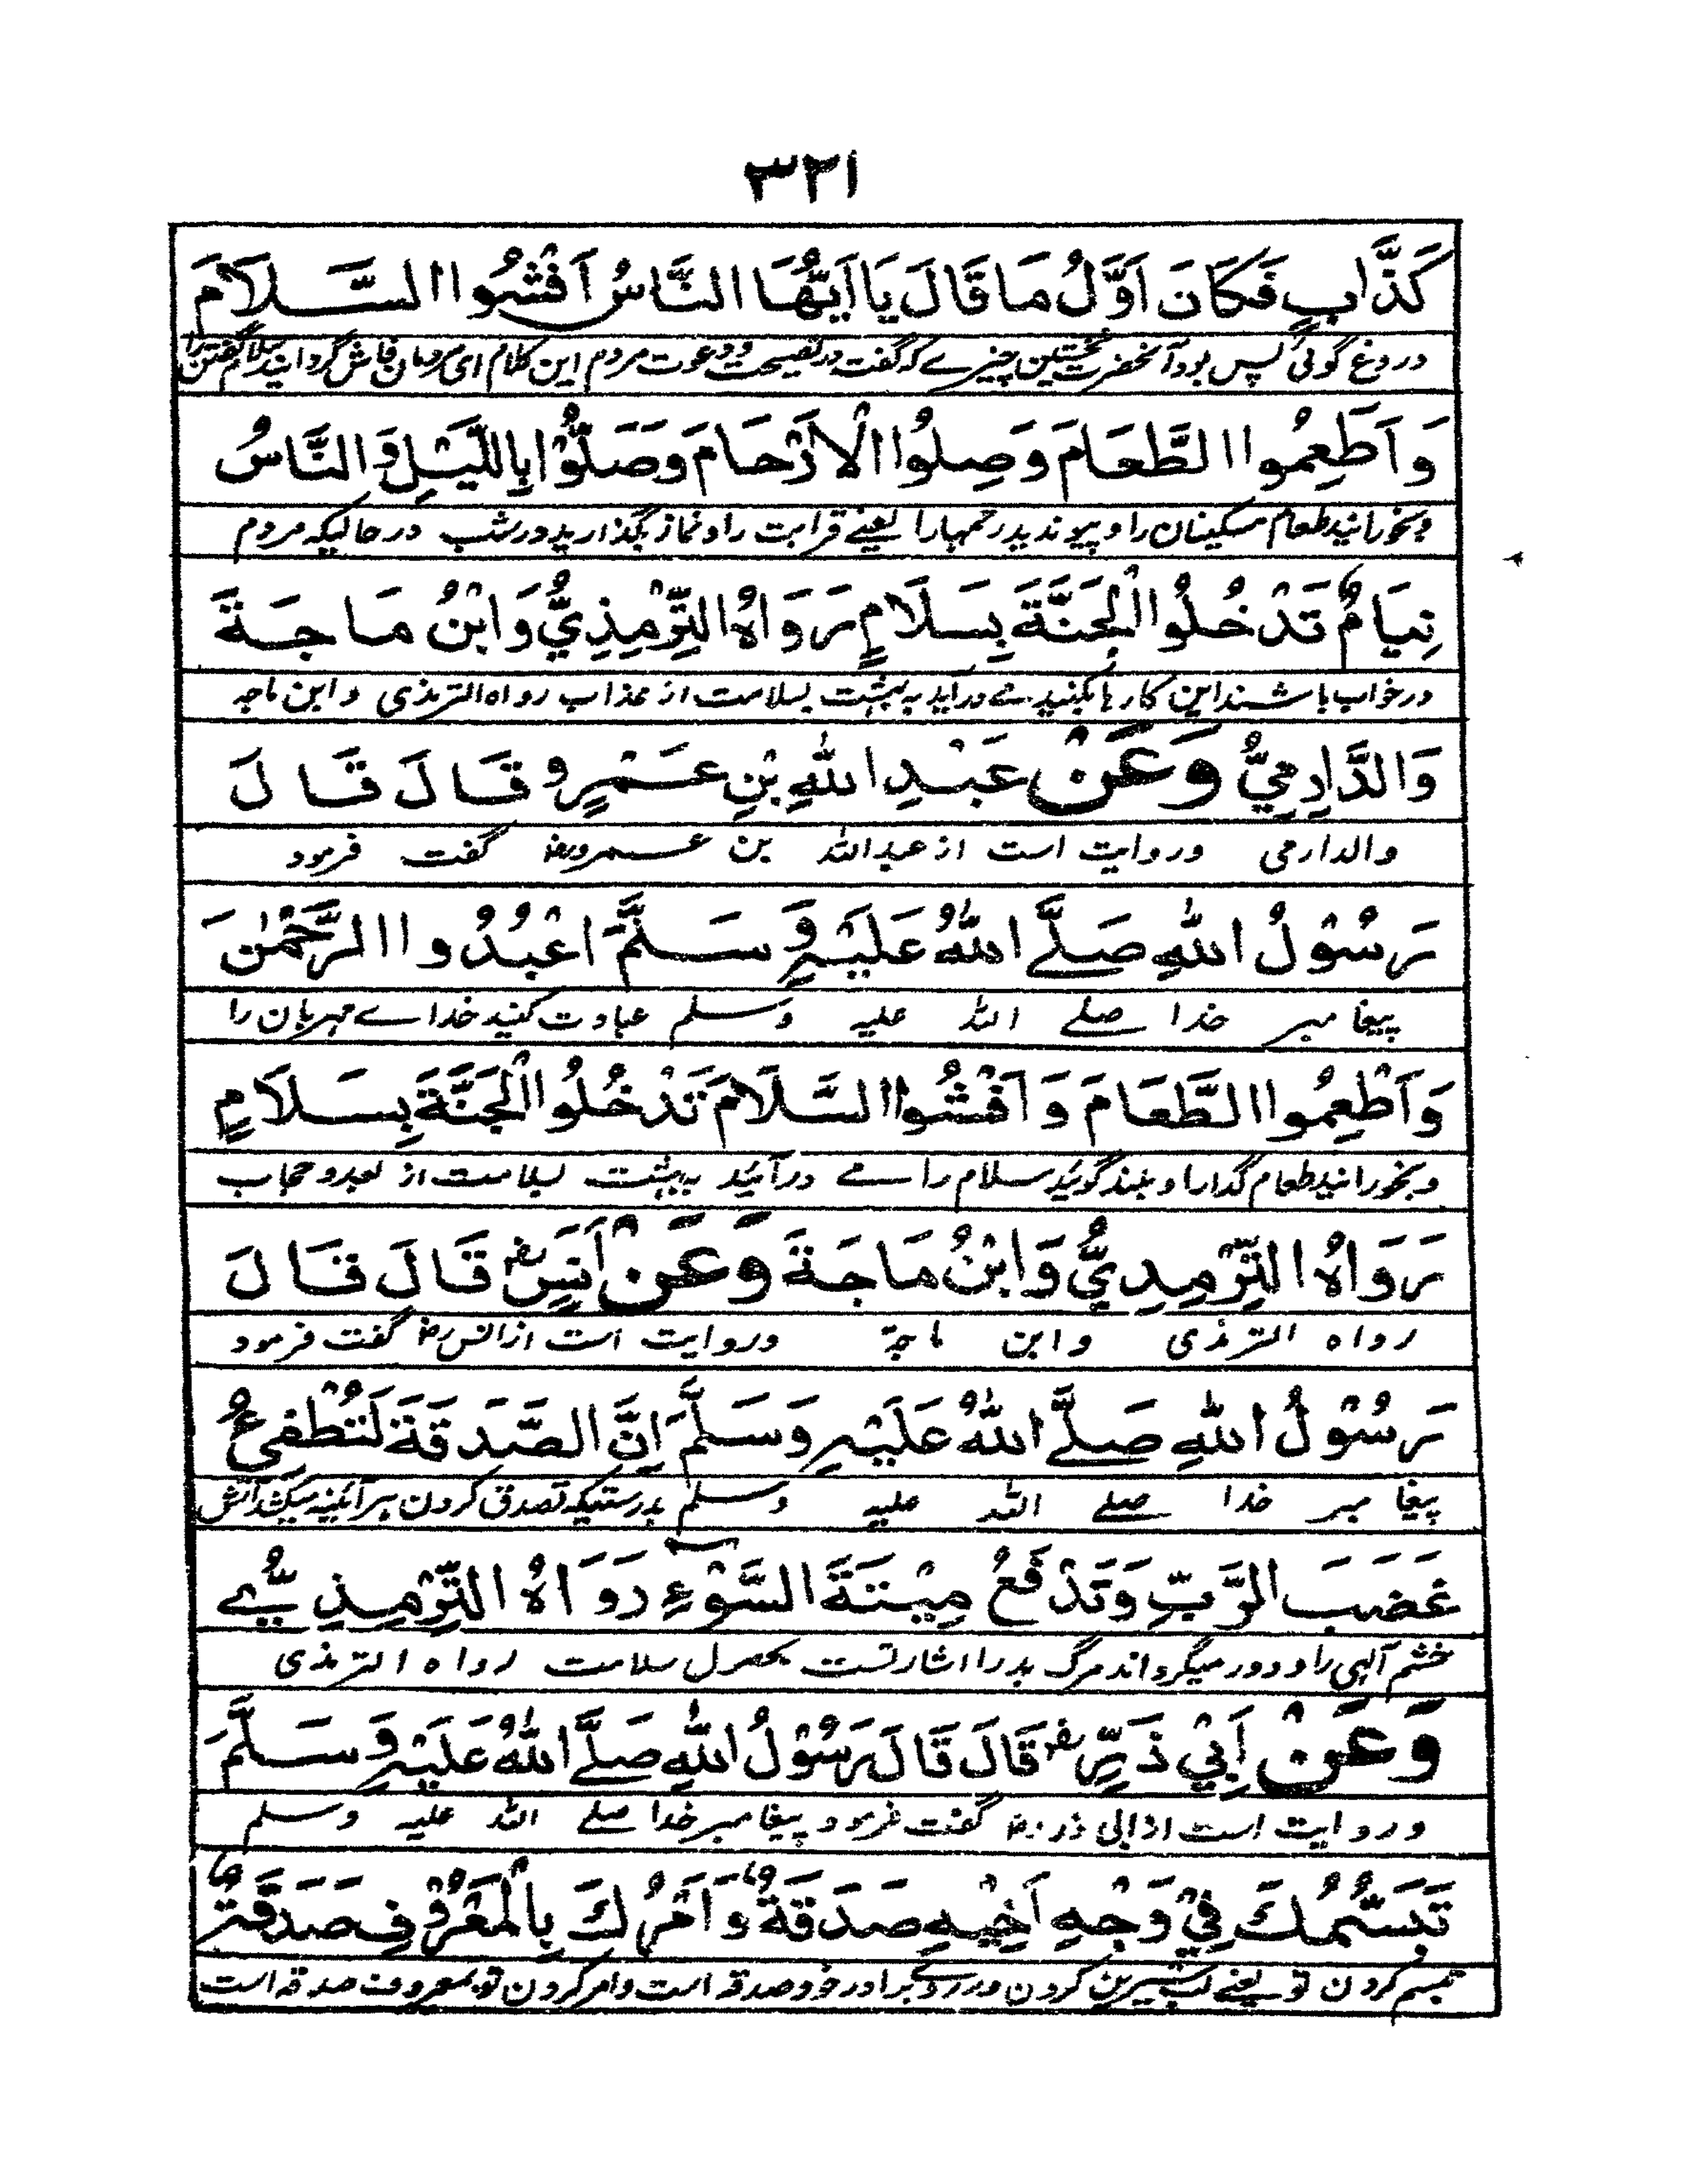 ٣٢١
كَذَّابٍ فَكَانَ اَوَّلُ مَا قَالَ يَا اَيُّهَا النَّاسُ اَفْشُوا السَّلَامَ
دروغ گوئی پس بود آنحضرت نخستین چیزے که گفت در نصیحت و دعوت مردم این کلام ای مردمان فاش گردانید سلام گفتن را
وَاَطْعِمُوا الطَّعَامَ وَصِلُوا الْاَرْحَامَ وَصَلُّوْا بِاللَّيْلِ وَالنَّاسُ
و بخورانید طعام مسکینان را و پیوندید رحمها را یعنے قرابت را و نماز بگذارید در شب در حالیکه مردم
نِيَامٌ تَدْخُلُوا الْجَنَّةَ بِسَلَامٍ رَوَاهُ التِّرْمِذِيُّ وَابْنُ مَاجَةَ
در خواب باشند این کارها بکنید مے درآیید به بهشت بسلامت از عذاب رواه الترمذی و ابن ماجه
وَالدَّارِمِيُّ وَعَنْ عَبْدِ اللّٰهِ بْنِ عَمْرٍو قَالَ قَالَ
والدارمی و روایت است از عبدالله بن عمرو رض گفت فرمود
رَسُوْلُ اللّٰهِ صَلَّے اللّٰهُ عَلَيْهِ وَسَلَّمَ اعْبُدُوا الرَّحْمٰنَ
پیغامبر خدا صلے الله علیه وسلم عبادت کنید خداے مهربان را
وَاَطْعِمُوا الطَّعَامَ وَاَفْشُوا السَّلَامَ تَدْخُلُوا الْجَنَّةَ بِسَلَامٍ
و بخورانید طعام گدا را و بلند گوئید سلام را مے درآئید به بهشت بسلامت از بعد و حجاب
رَوَاهُ التِّرْمِذِيُّ وَابْنُ مَاجَةَ وَعَنْ اَنَسٍ رض قَالَ قَالَ
رواه الترمذی وابن ماجة و روایت است از انس رض گفت فرمود
رَسُوْلُ اللّٰهِ صَلَّے اللّٰهُ عَلَيْهِ وَسَلَّمَ اِنَّ الصَّدَقَةَ لَتُطْفِئُ
پیغامبر خدا صلے الله علیه وسلم بدرستیکه تصدق کردن هر آئینه میکشد آتش
غَضَبَ الرَّبِّ وَتَدْفَعُ مِيْتَةَ السَّوْءِ رَوَاهُ التِّرْمِذِيُّ
خشم آلهی را و دور میگرداند مرگ بد را اشارتست بحصول سلامت رواه الترمذی
وَعَنْ اَبِيْ ذَرٍّ رض قَالَ قَالَ رَسُوْلُ اللّٰهِ صَلَّے اللّٰهُ عَلَيْهِ وَسَلَّمَ
و روایت است از ابی ذر رض گفت فرمود پیغامبر خدا صلے الله علیه وسلم
تَبَسُّمُكَ فِيْ وَجْهِ اَخِيْهِ صَدَقَةٌ وَاَمْرُكَ بِالْمَعْرُوْفِ صَدَقَةٌ
تبسم کردن تو یعنے لب شیرین کردن در روے برادر خود صدقه است و امر کردن تو بمعروف صدقه است